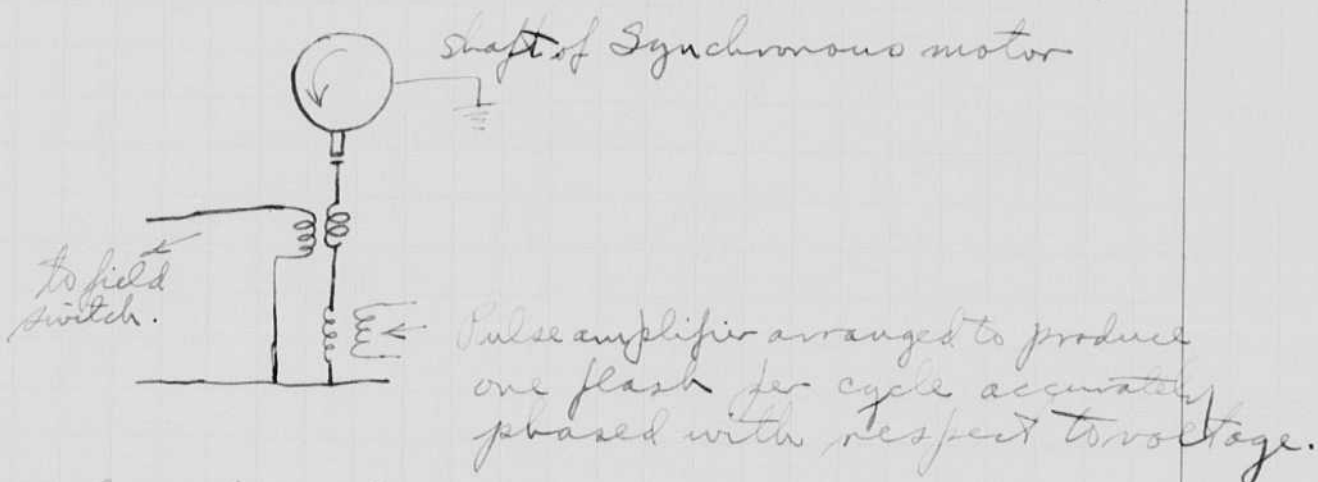 shaft of Synchronous motor
to field
switch.
Pulse amplifier arranged to produce
one flash per cycle accurately
phased with respect to voltage.